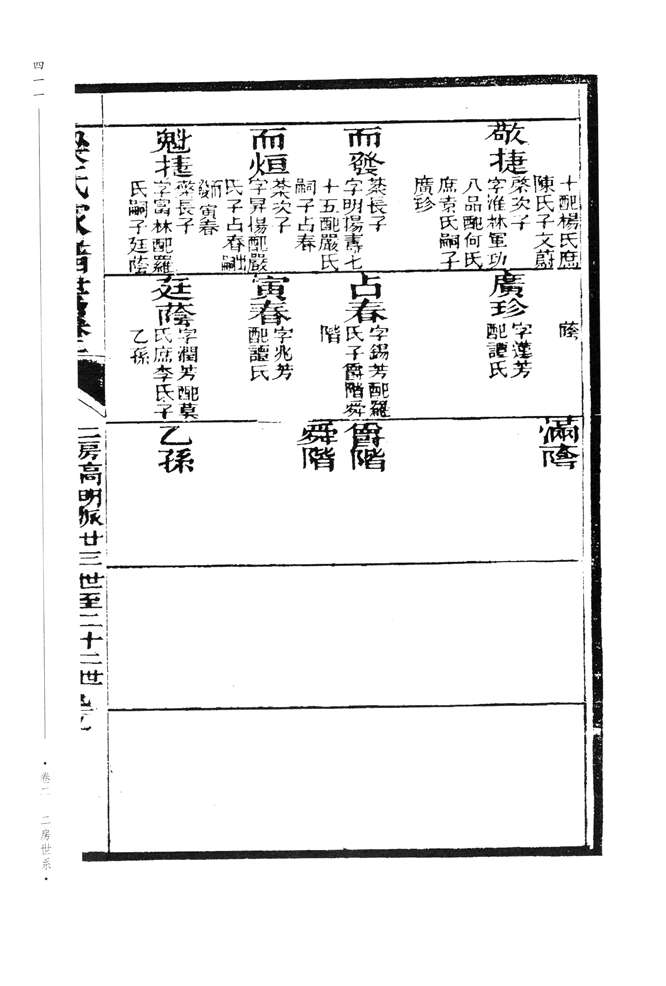 十配楊氏庶
陳氏子文蔚
敬捷
榮次子
字淮林軍功
八品配何氏
庶袁氏嗣子
廣珍
而發
棻長子
字明揚壽七
十五配嚴氏
嗣子占春
而烜
棻次子
字昇揚配嚴
氏子占春出嗣
寅春
魁捷
榮長子
字富林配羅
氏嗣子廷蔭
蔭
廣珍
字蓬芳
配譚氏
占春
字錫芳配羅
氏子爵階舜
階
寅春
字兆芳
配譚氏
廷蔭
字潤芳配莫
氏庶李氏子
乙孫
滿蔭
爵階
舜階
乙孫
氏家譜世
二房高明派廿三世至二十二世
四一一
卷二 二房世系